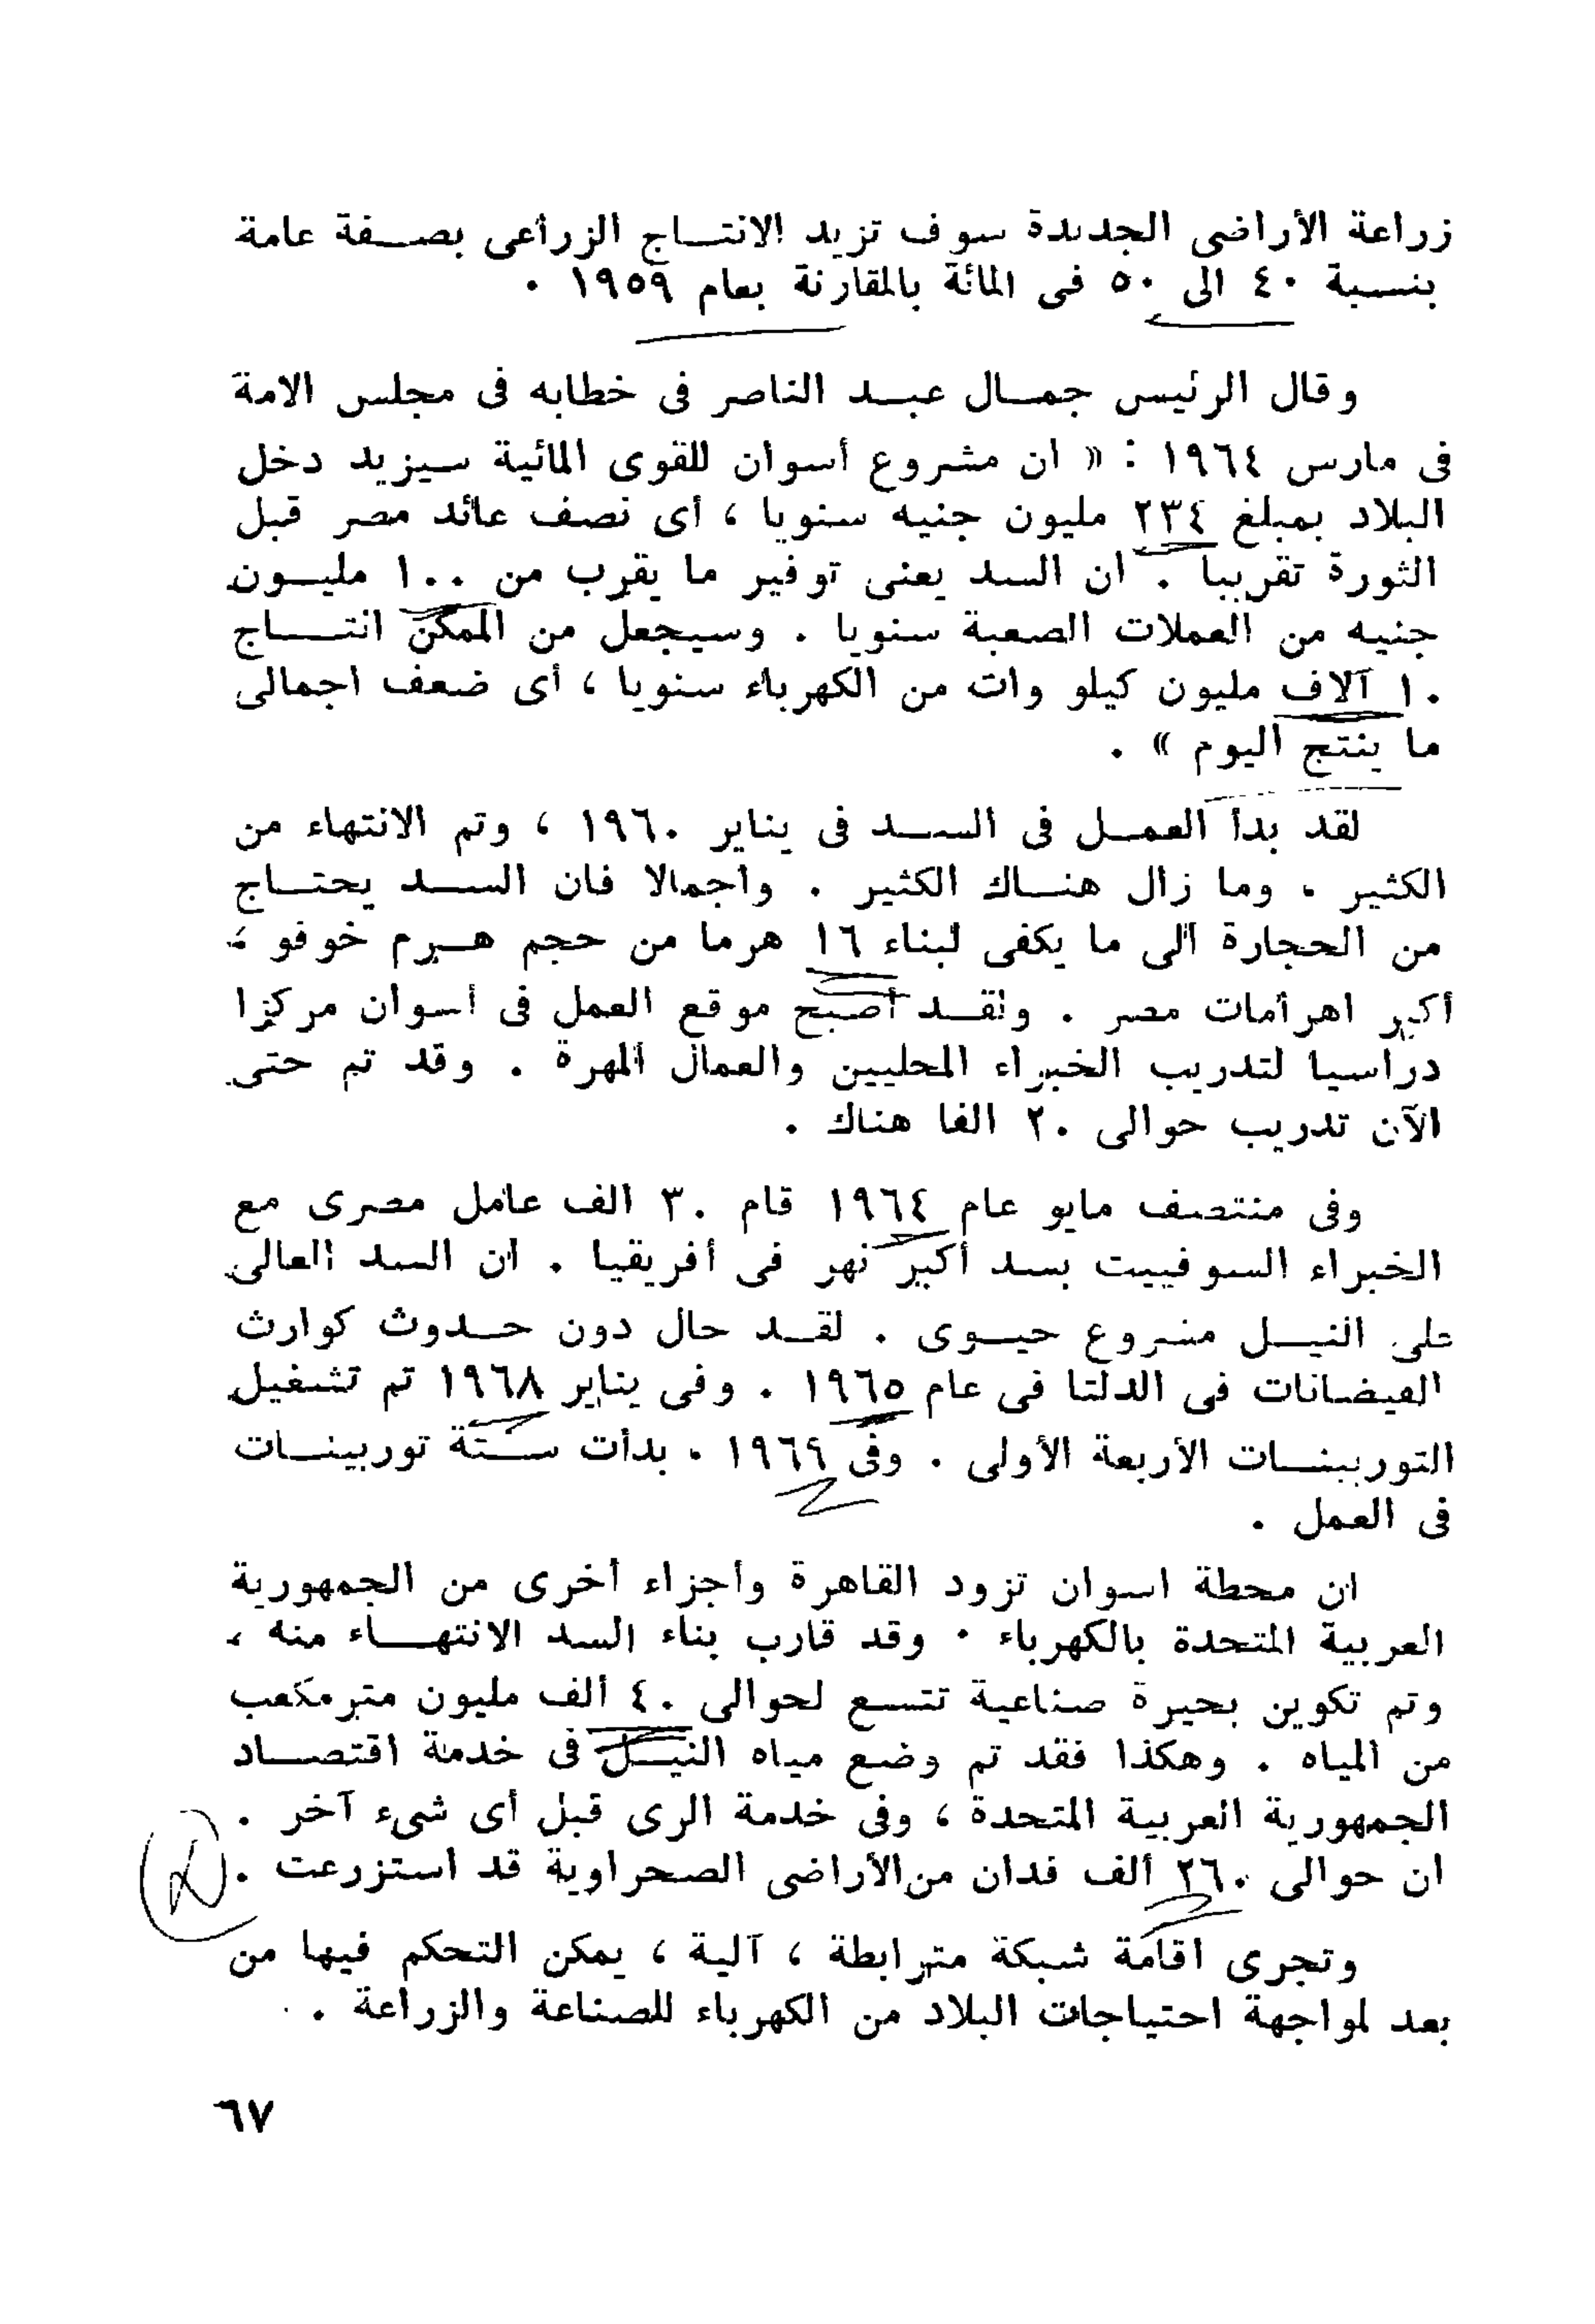 زراعة الأراضى الجديدة سوف تزيد الانتاج الزراعى بصفة عامة
بنسبة ٤٠ الى ٥٠ فى المائة بالمقارنة بعام ١٩٥٩ ٠
وقال الرئيس جمال عبد الناصر فى خطابه فى مجلس الامة
فى مارس ١٩٦٤ : « ان مشروع أسوان للقوى المائية سيزيد دخل
البلاد بمبلغ ٢٣٤ مليون جنيه سنويا ، أى نصف عائد مصر قبل
الثورة تقريبا . ان السد يعنى توفير ما يقرب من ١٠٠ مليون
جنيه من العملات الصعبة سنويا . وسيجعل من الممكن انتاج
١٠ آلاف مليون كيلو وات من الكهرباء سنويا ، أى ضعف اجمالى
ما ينتج اليوم » .
لقد بدأ العمل فى السد فى يناير ١٩٦٠ ، وتم الانتهاء من
الكثير . وما زال هناك الكثير . واجمالا فان السد يحتاج
من الحجارة الى ما يكفى لبناء ١٦ هرما من حجم هرم خوفو ،
أكبر اهرامات مصر . ولقد أصبح موقع العمل فى أسوان مركزا
دراسيا لتدريب الخبراء المحليين والعمال المهرة . وقد تم حتى
الآن تدريب حوالى ٢٠ الفا هناك .
وفى منتصف مايو عام ١٩٦٤ قام ٣٠ الف عامل مصرى مع
الخبراء السوفييت بسد أكبر نهر فى أفريقيا . ان السد العالى
على النيل مشروع حيوى . لقد حال دون حدوث كوارث
الفيضانات فى الدلتا فى عام ١٩٦٥ . وفى يناير ١٩٦٨ تم تشغيل
التوربينات الأربعة الأولى . وفى ١٩٦٩ . بدأت ستة توربينات
فى العمل .
ان محطة اسوان تزود القاهرة وأجزاء أخرى من الجمهورية
العربية المتحدة بالكهرباء ٠ وقد قارب بناء السد الانتهاء منه ،
وتم تكوين بحيرة صناعية تتسع لحوالى ٤٠ ألف مليون متر مكعب
من المياه . وهكذا فقد تم وضع مياه النيل فى خدمة اقتصاد
الجمهورية العربية المتحدة ، وفى خدمة الرى قبل أى شىء آخر .
ان حوالى ٢٦٠ ألف فدان من الأراضى الصحراوية قد استزرعت .
وتجرى اقامة شبكة مترابطة ، آلية ، يمكن التحكم فيها من
بعد لمواجهة احتياجات البلاد من الكهرباء للصناعة والزراعة .
٦٧